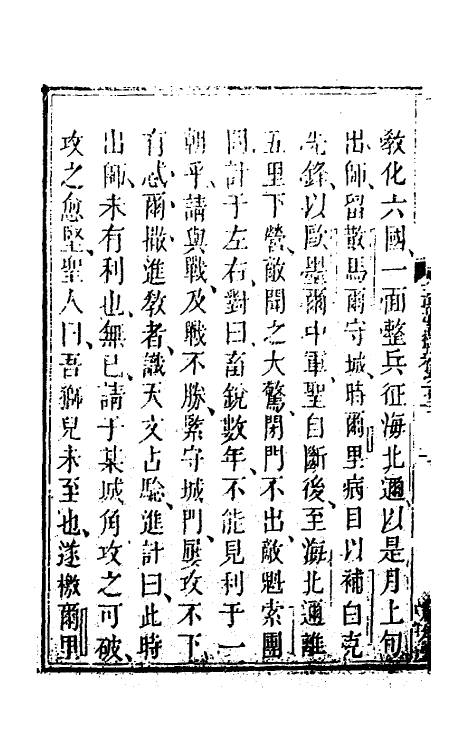 教化六國一面整兵征海北邇以是月上旬
出師留散馬爾守城時爾里病目以補白克
先鋒以歐墨爾中軍聖自斷後至海北邇離
五里下營敵聞之大驚閉門不出敵魁索團
問計于左右對曰畜銳數年不能見利于一
朝乎請與戰及戰不勝緊守城門屢攻不下
有忒爾撒進教者識天文占驗進計曰此時
出師未有利也無已請于某城角攻之可破
攻之愈堅聖人曰吾獅兒未至也遂檄爾里